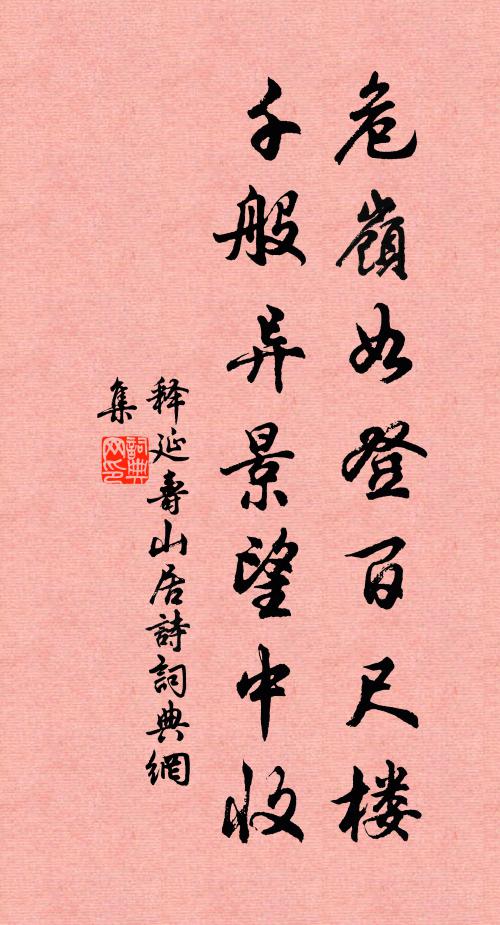 危嶺如登百尺楼
千般异景望中收
释延壽山居詩詞典網
集
詞典網印